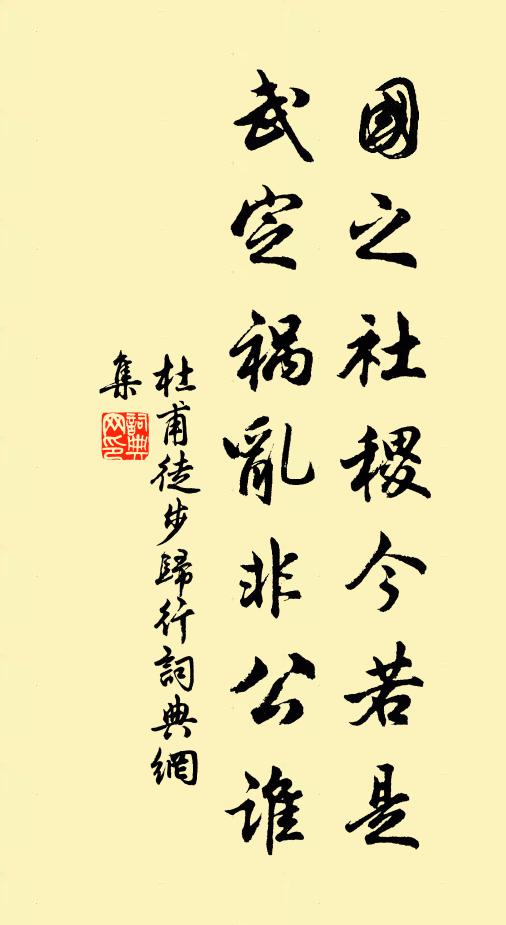 國之社稷今若是
武定禍亂非公誰
杜甫徒步歸行詞典網
集
詞典
网印